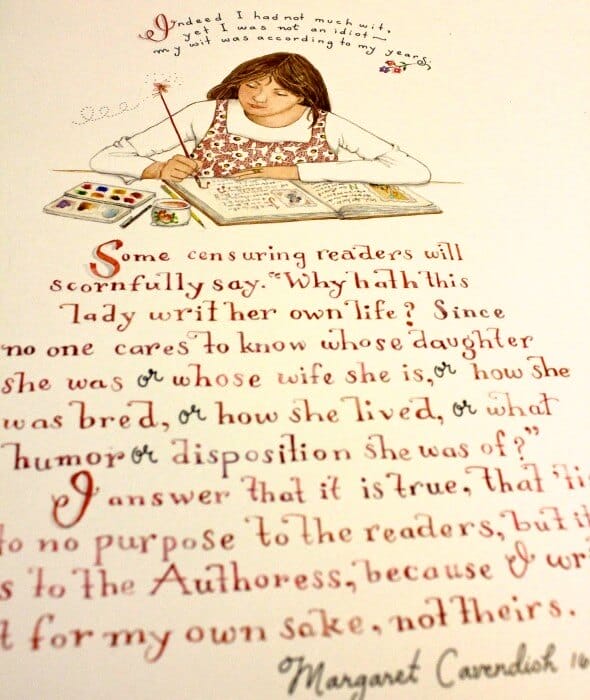 Indeed I had not much wit,
yet I was not an idiot—
my wit was according to my years
Some censuring readers will
scornfully say. "Why hath this
lady writ her own life? Since
no one cares to know whose daughter
she was or whose wife she is, or how she
was bred, or how she lived, or what
humor or disposition she was of?"
I answer that it is true, that 'ti
to no purpose to the readers, but it
s to the Authoress, because I wr
t for my own sake, not theirs.
Margaret Cavendish 16